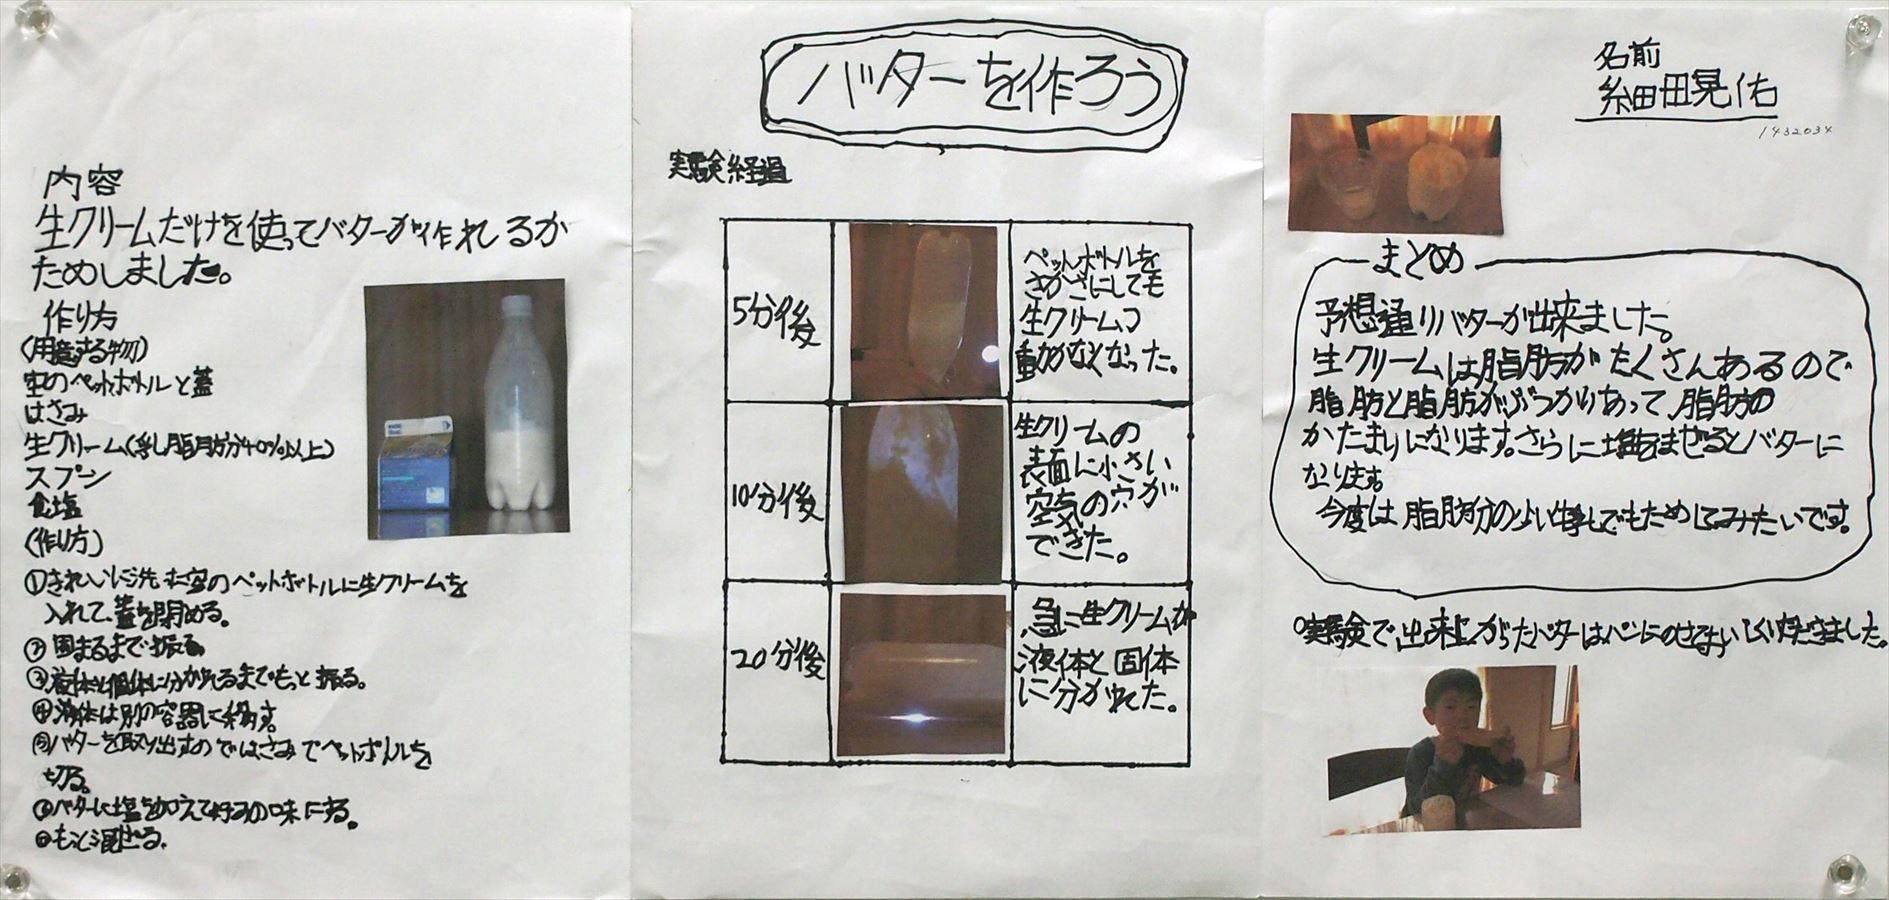 バターを作ろう
名前
細田晃佑
1432034
内容
生クリームだけを使ってバターが作れるか
ためしました。
作り方
(用意する物)
空のペットボトルと蓋
はさみ
生クリーム(乳脂肪分40%以上)
スプーン
食塩
(作り方)
①きれいに洗った空のペットボトルに生クリームを
入れて、蓋を閉める。
②固まるまで振る。
③液体と個体に分かれるまでもっと振る。
④液体は別の容器に移す。
⑤バターを取り出すのではさみでペットボトルを
切る。
⑥バターに塩を加えて好みの味にする。
⑦もっと混ぜる。
実験経過
5分後
ペットボトルを
さかさにしても
生クリームつ
動かなくなった。
10分後
生クリームの
表面に小さい
空気の穴が
できた。
20分後
急に生クリームが
液体と固体
に分かれた。
まとめ
予想通りバターが出来ました。
生クリームは脂肪がたくさんあるので
脂肪と脂肪がぶつかりあって脂肪の
かたまりになります。さらに塩をまぜるとバターに
なります。
今度は脂肪分の少い牛乳でもためしてみたいです。
○実験で出来上がったバターはパンにのせておいしくいただきました。